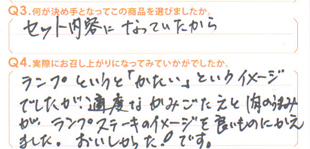 Q3.何が決め手となってこの商品を選びましたか。
セット内容になっていたから
Q4.実際にお召し上がりになってみていかがでしたか。
ランプというと「かたい」というイメージ
でしたが適度なかみごたえと肉のうまみ
が、ランプステーキのイメージを良いものにかえ
ました。おいしかった!です。